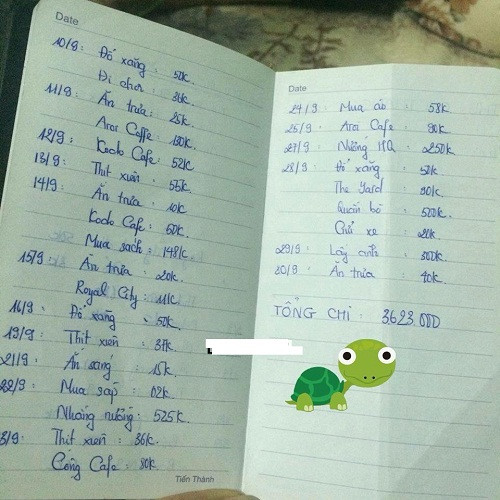 Date
10/9: Đổ xăng : 50k.
Đi chơi : 36k.
11/9: Ăn trưa : 25k
Aroi Caffe : 130k.
12/9: Kodo Cafe: 52k
13/9: Thịt xiên : 55k.
14/9: Ăn trưa : 10k
Kodo Cafe: 60k.
Mua sách : 148k
15/9: Ăn trưa : 20k.
Royal City: 11k
16/9: Đổ xăng : 50k.
19/9: Thịt xiên : 37k.
21/9: Ăn sáng : 15k
22/9: Mua sáp : 62k
Nhoáng nướng: 525k
3/9: Thịt xiên : 36k.
Cộng Cafe: 80k.
Tiến Thành
Date
24/9: Mua áo : 58k
25/9: Aroi Cafe : 90k
27/9: Nướng HQ : 250k
28/9: Đổ xăng : 50k
The Yard : 90k
Quán bò : 500k.
Gửi xe : 20k
29/9: Lấy ảnh : 300k
30/9: Ăn trưa : 40k.
TỔNG CHI : 3.623.000